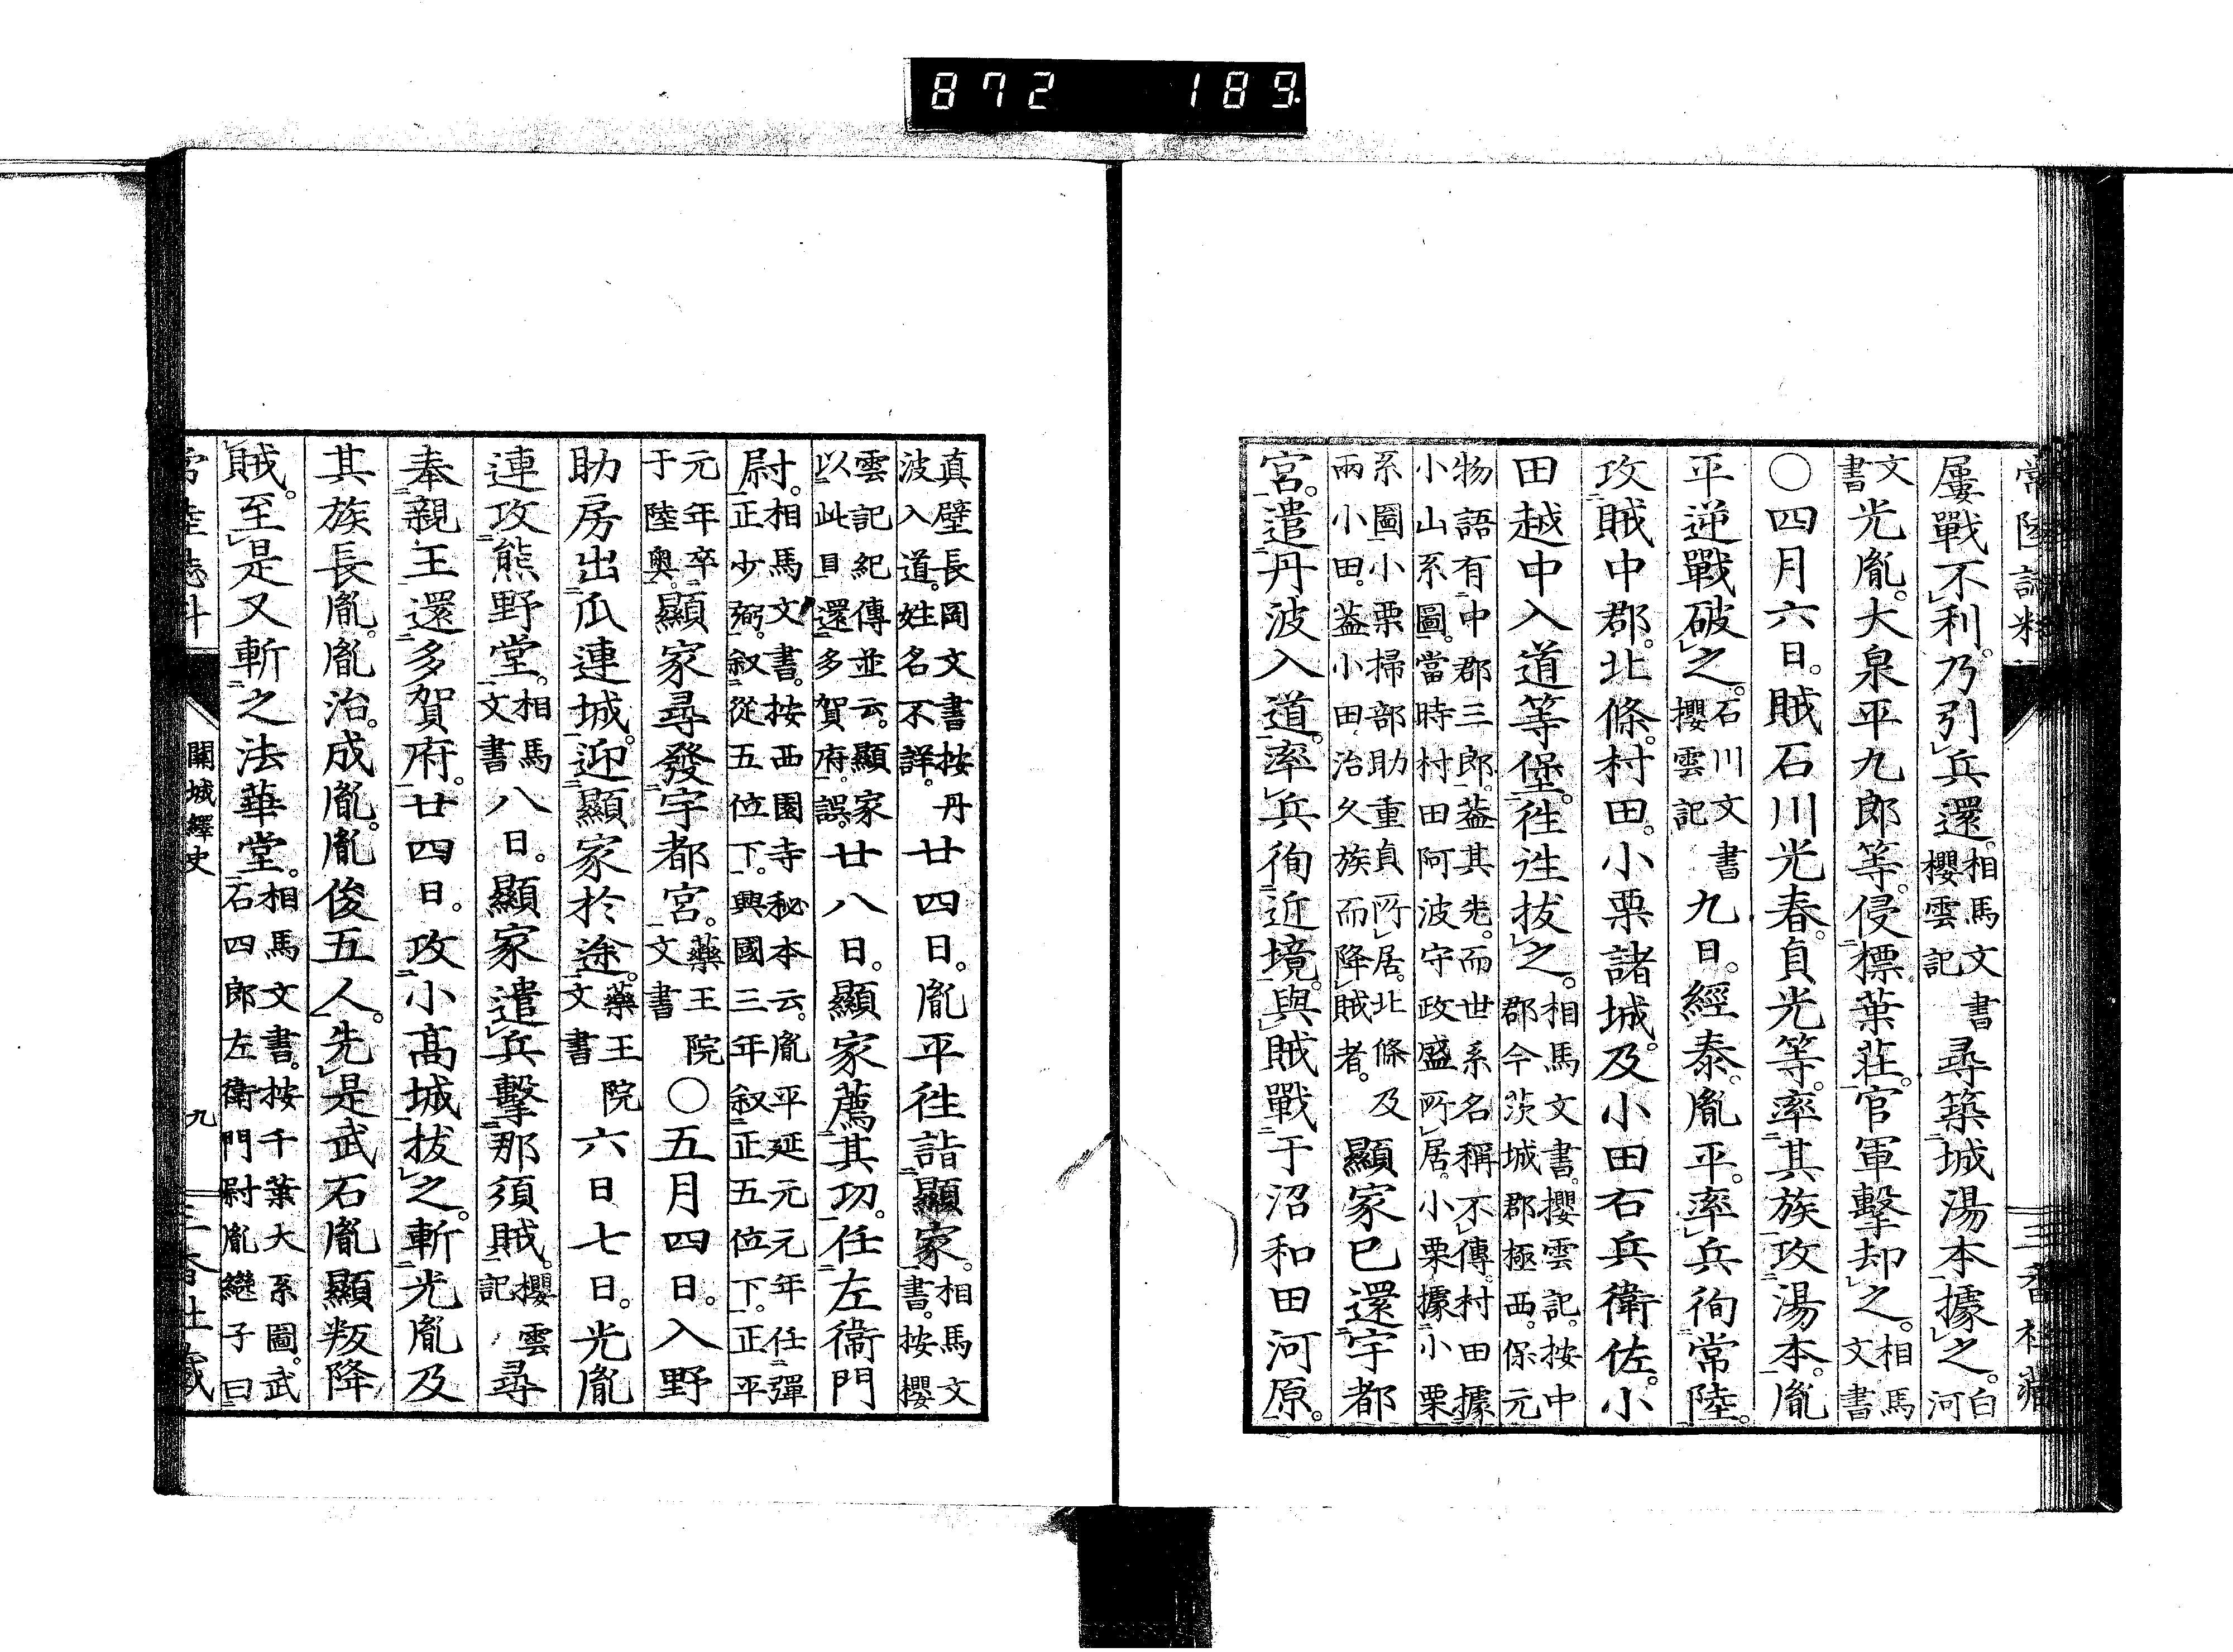 872 189
屢戰不利。乃引兵還。相馬文書櫻雲記尋築城湯本據之。白河
文書光胤。大泉平九郎等。侵標葉莊。官軍擊却之。相馬文書
○四月六日。賊石川光春。貞光等。率其族攻湯本。胤
平逆戰破之。石川文書櫻雲記九日。經泰。胤平。率兵徇常陸。
攻賊中郡。北條。村田。小栗諸城。及小田石兵衞佐。小
田越中入道等堡。徃徃拔之。相馬文書。櫻雲記。按中郡今茨城郡極西。保元
物語有中郡三郎。蓋其先。而世系名稱不傳。村田據小山系圖。當時村田阿波守政盛所居。小栗據小栗
系圖小栗掃部助重貞所居。北條及兩小田。蓋小田治久族而降賊者。顯家已還宇都
宮。遣丹波入道。率兵徇近境。與賊戰于沼和田河原。
真壁長岡文書按丹波入道。姓名不詳。廿四日。胤平徃詣顯家。相馬文書。按櫻
雲記紀傳並云。顯家以此月還多賀府。誤。廿八日。顯家薦其功。任左衞門
尉。相馬文書。按西園寺秘本云。胤平延元元年任彈正少弼。叙從五位下。興國三年叙正五位下。正平
元年卒于陸奧。顯家尋發宇都宮。藥王院文書○五月四日。入野
助房出瓜連城。迎顯家於途。藥王院文書六日七日。光胤
連攻熊野堂。相馬文書八日。顯家遣兵擊那須賊。櫻雲記尋
奉親王還多賀府。廿四日。攻小高城拔之。斬光胤及
其族長胤。胤治。成胤。胤俊五人。先是武石胤顯叛降
賊。至是又斬之法華堂。相馬文書。按千葉大系圖。武石四郎左衞門尉胤繼子曰
關城繹史
九